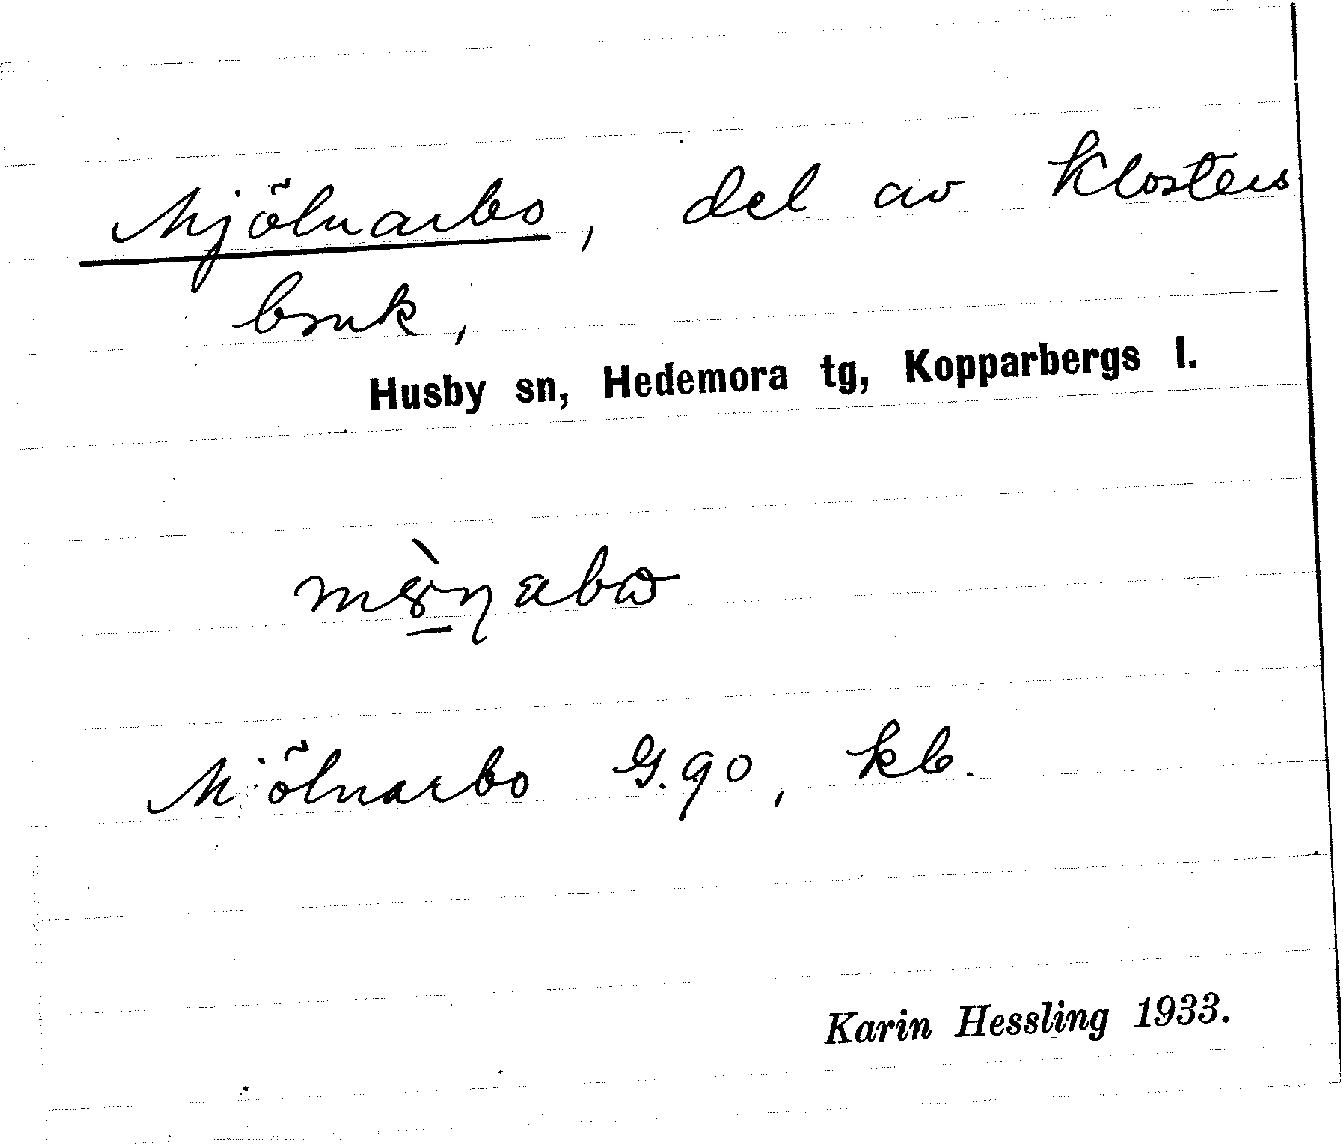 Mjölnarbo, del av Klosters
bruk,
Husby sn, Hedemora tg, Kopparbergs l.
Mölnarbo G.90, kb.
Karin Hessling 1933.